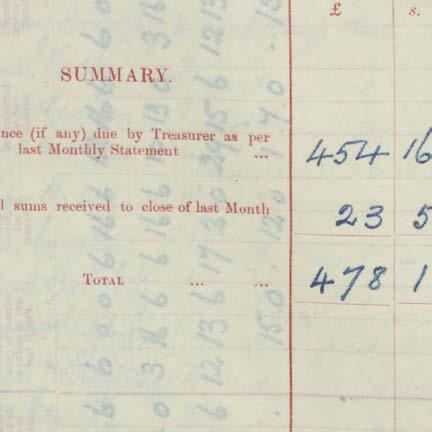 £ s.
SUMMARY.
nce (if any) due by Treasurer as per
last Monthly Statement ... 454 16
sums received to close of last Month 23 5
TOTAL ... ... 478 1